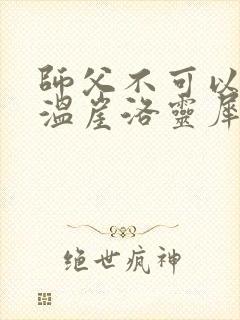 師父不可以
溫崖洛靈犀
绝世疯神